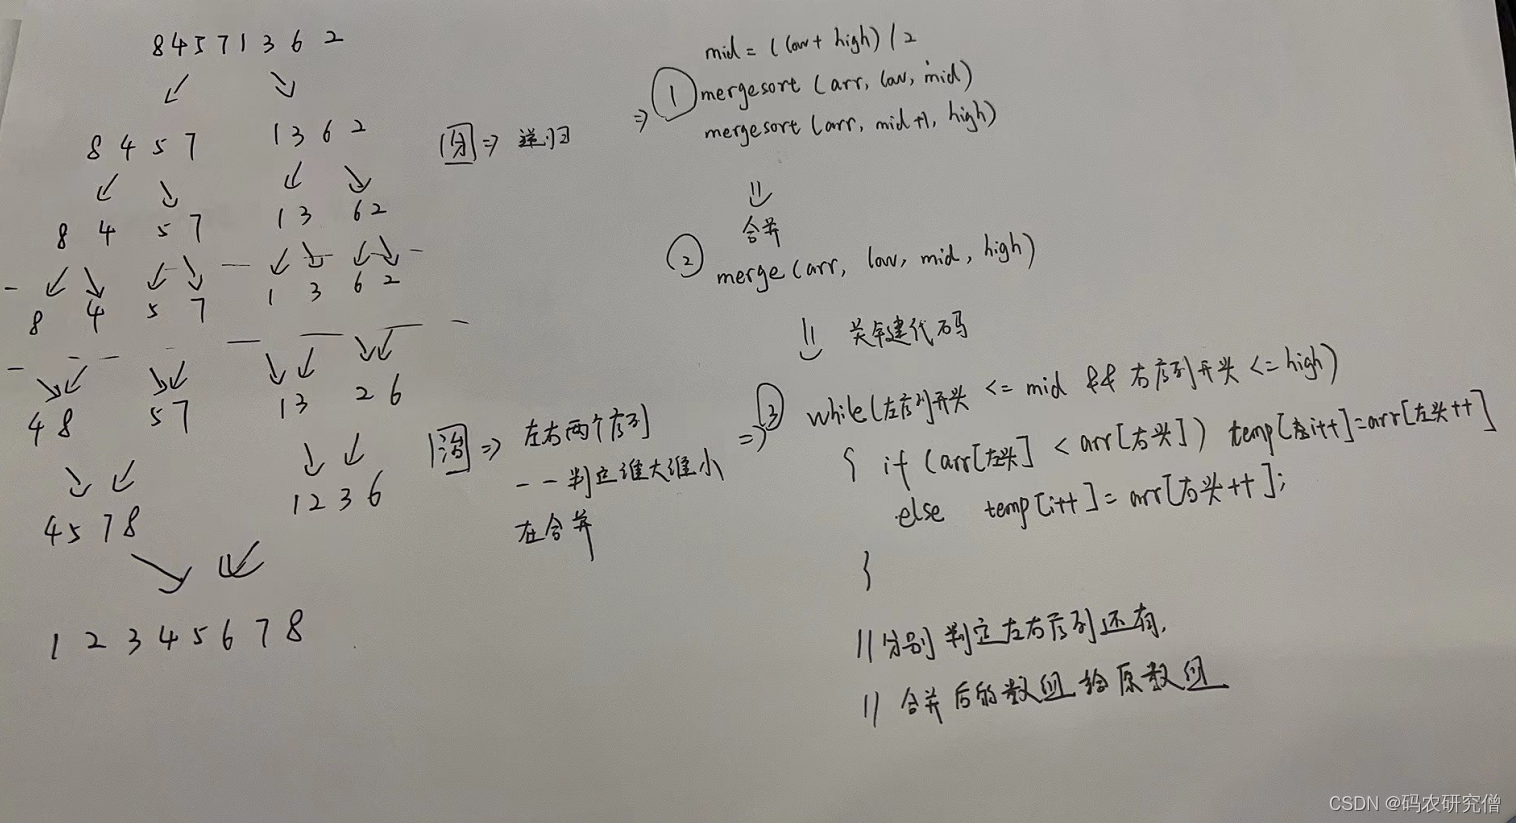 8 4 5 7 1 3 6 2
8 4 5 7 1 3 6 2
8 4 5 7 1 3 6 2
8 4 5 7 1 3 6 2
4 8 5 7 1 3 2 6
4 5 7 8 1 2 3 6
1 2 3 4 5 6 7 8
分 => 递归
治 => 左右两个序列
一一判定谁大谁小
在合并
=> ① mid = (low + high) / 2
mergesort (arr, low, mid)
mergesort (arr, mid+1, high)
合并
② merge (arr, low, mid, high)
关键代码
=> ③ while(左序列开头 <= mid && 右序列开头 <= high)
{ if (arr[左头] < arr[右头]) temp[i++]=arr[左头++]
else temp[i++] = arr[右头++];
}
//分别判定左右序列还有,
// 合并后的数组给原数组
CSDN @码农研究僧